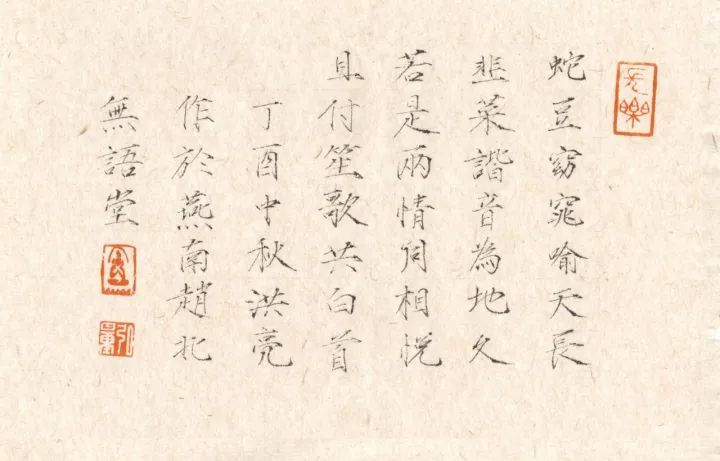 蛇豆窈窕喻天長
韭菜諧音為地久
若是兩情同相悅
且付笙歌共白首
丁酉中秋洪亮
作於燕南趙北
無語堂